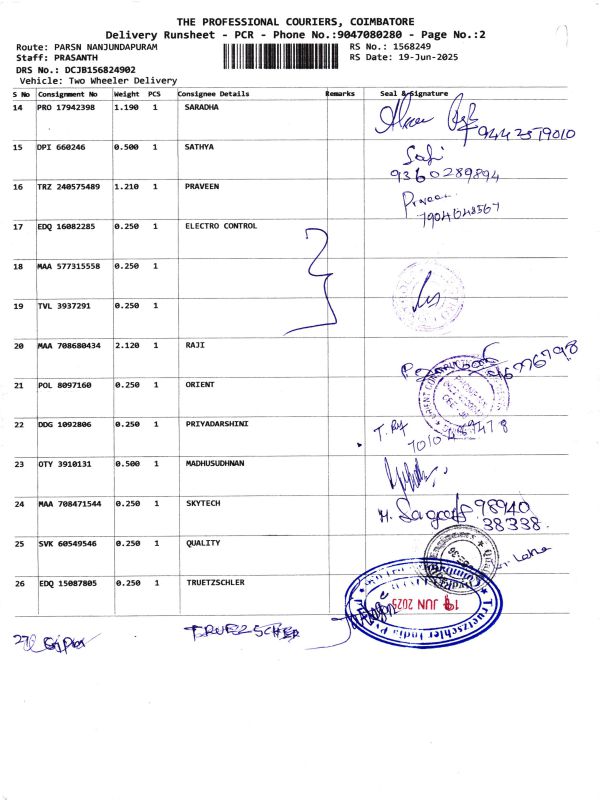 THE PROFESSIONAL COURIERS, COIMBATORE
Delivery Runsheet - PCR - Phone No.:9047080280 - Page No.:2
Route: PARSN NANJUNDAPURAM
RS No.: 1568249
Staff: PRASANTH
RS Date: 19-Jun-2025
DRS No.: DCJB156824902
Vehicle: Two Wheeler Delivery
S No Consignment No Weight PCS Consignee Details Remarks Seal & Signature
14 PRO 17942398 1.190 1 SARADHA
9442579010
15 DPI 660246 0.500 1 SATHYA
9360289894
16 TRZ 240575489 1.210 1 PRAVEEN
Praveen
7904648567
17 EDQ 16082285 0.250 1 ELECTRO CONTROL
18 MAA 577315558 0.250 1
19 TVL 3937291 0.250 1
20 MAA 708680434 2.120 1 RAJI
21 POL 8097160 0.250 1 ORIENT
22 DDG 1092806 0.250 1 PRIYADARSHINI
23 OTY 3910131 0.500 1 MADHUSUDHNAN
24 MAA 708471544 0.250 1 SKYTECH
98940
38338
25 SVK 60549546 0.250 1 QUALITY
26 EDQ 15087805 0.250 1 TRUETZSCHLER
Truetzschler India
JUN 2025
27